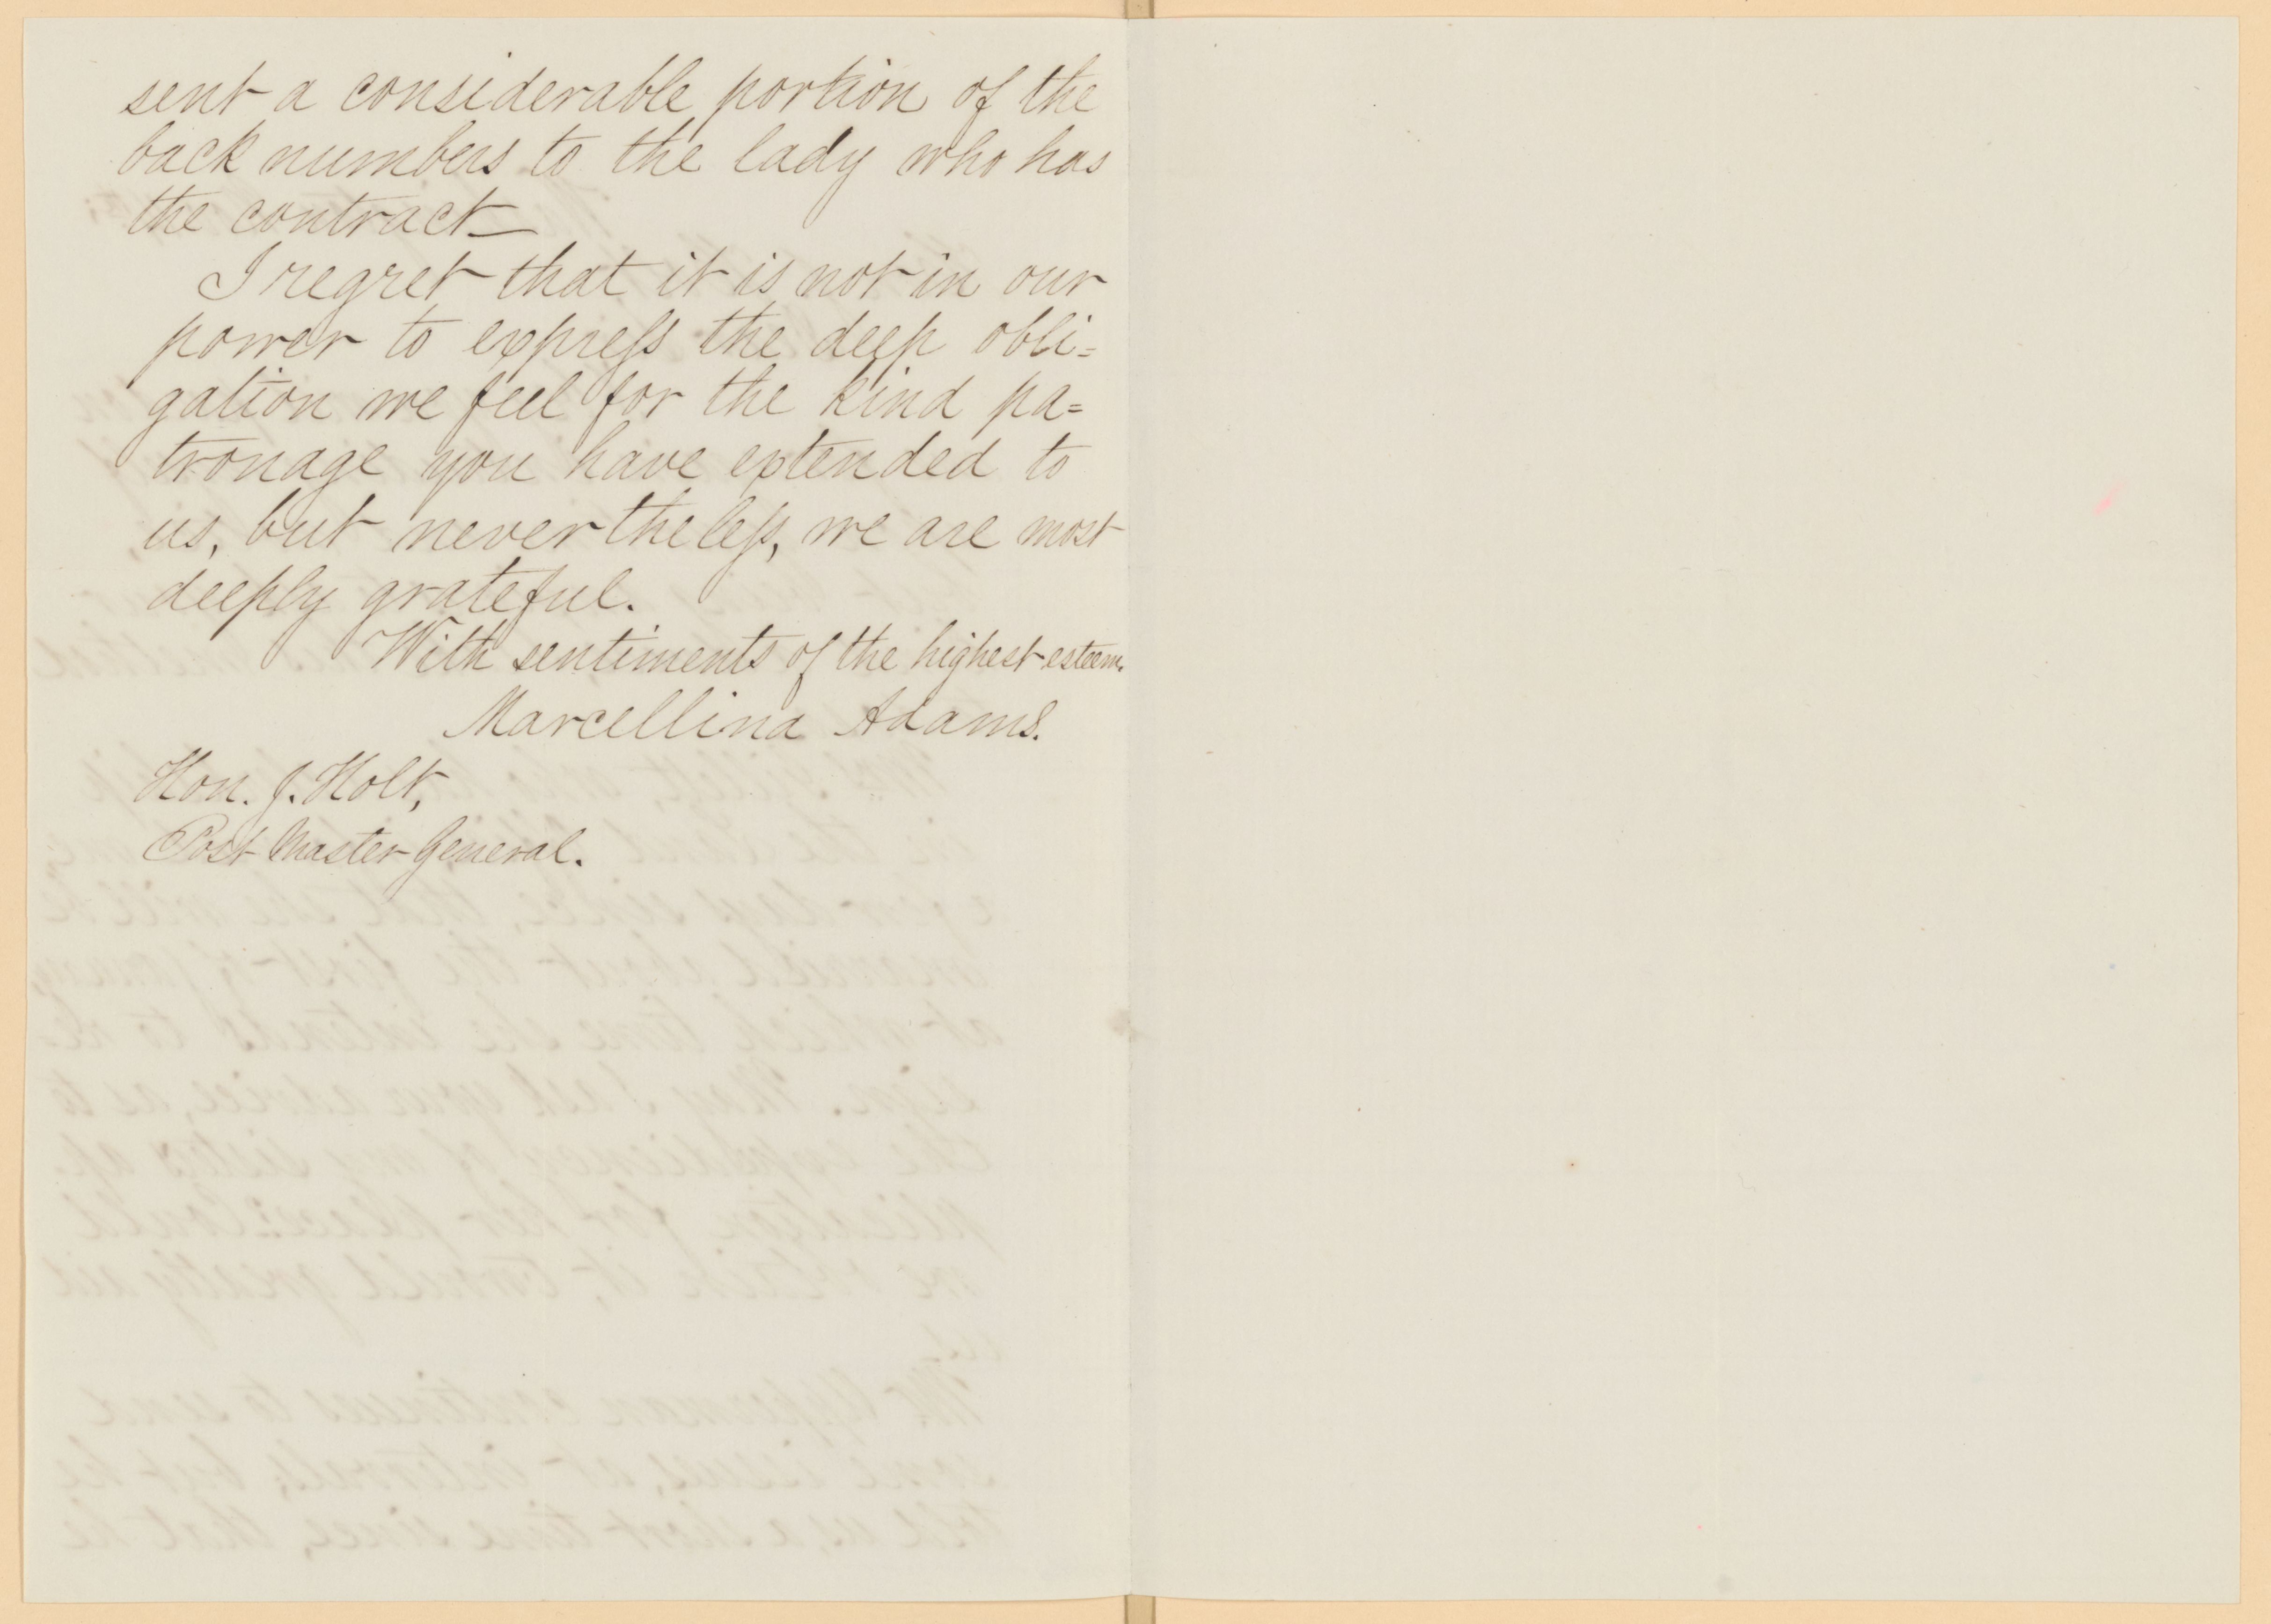 sent a considerable portion of the
back numbers to the lady who has
the contract—
I regret that it is not in our
power to express the deep obli=
gation we feel for the kind pa=
tronage you have extended to
us, but nevertheless, we are most
deeply grateful.
With sentiments of the highest esteem.
Marcellina Adams.
Hon. J. Holt,
Post Master General.